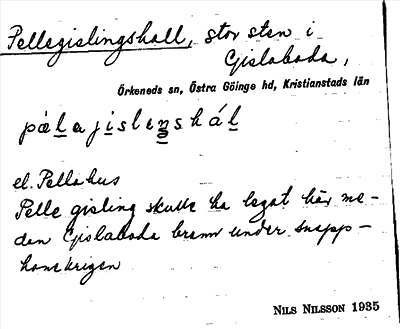 Pellegislingshall, stor sten i
Gislaboda,
Örkeneds sn, Östra Göinge hd, Kristianstads län
el. Pellahus
Pelle gisling skulle ha legat här me-
dan Gislaboda brann under snapp-
hanekrigen
NILS NILSSON 1935